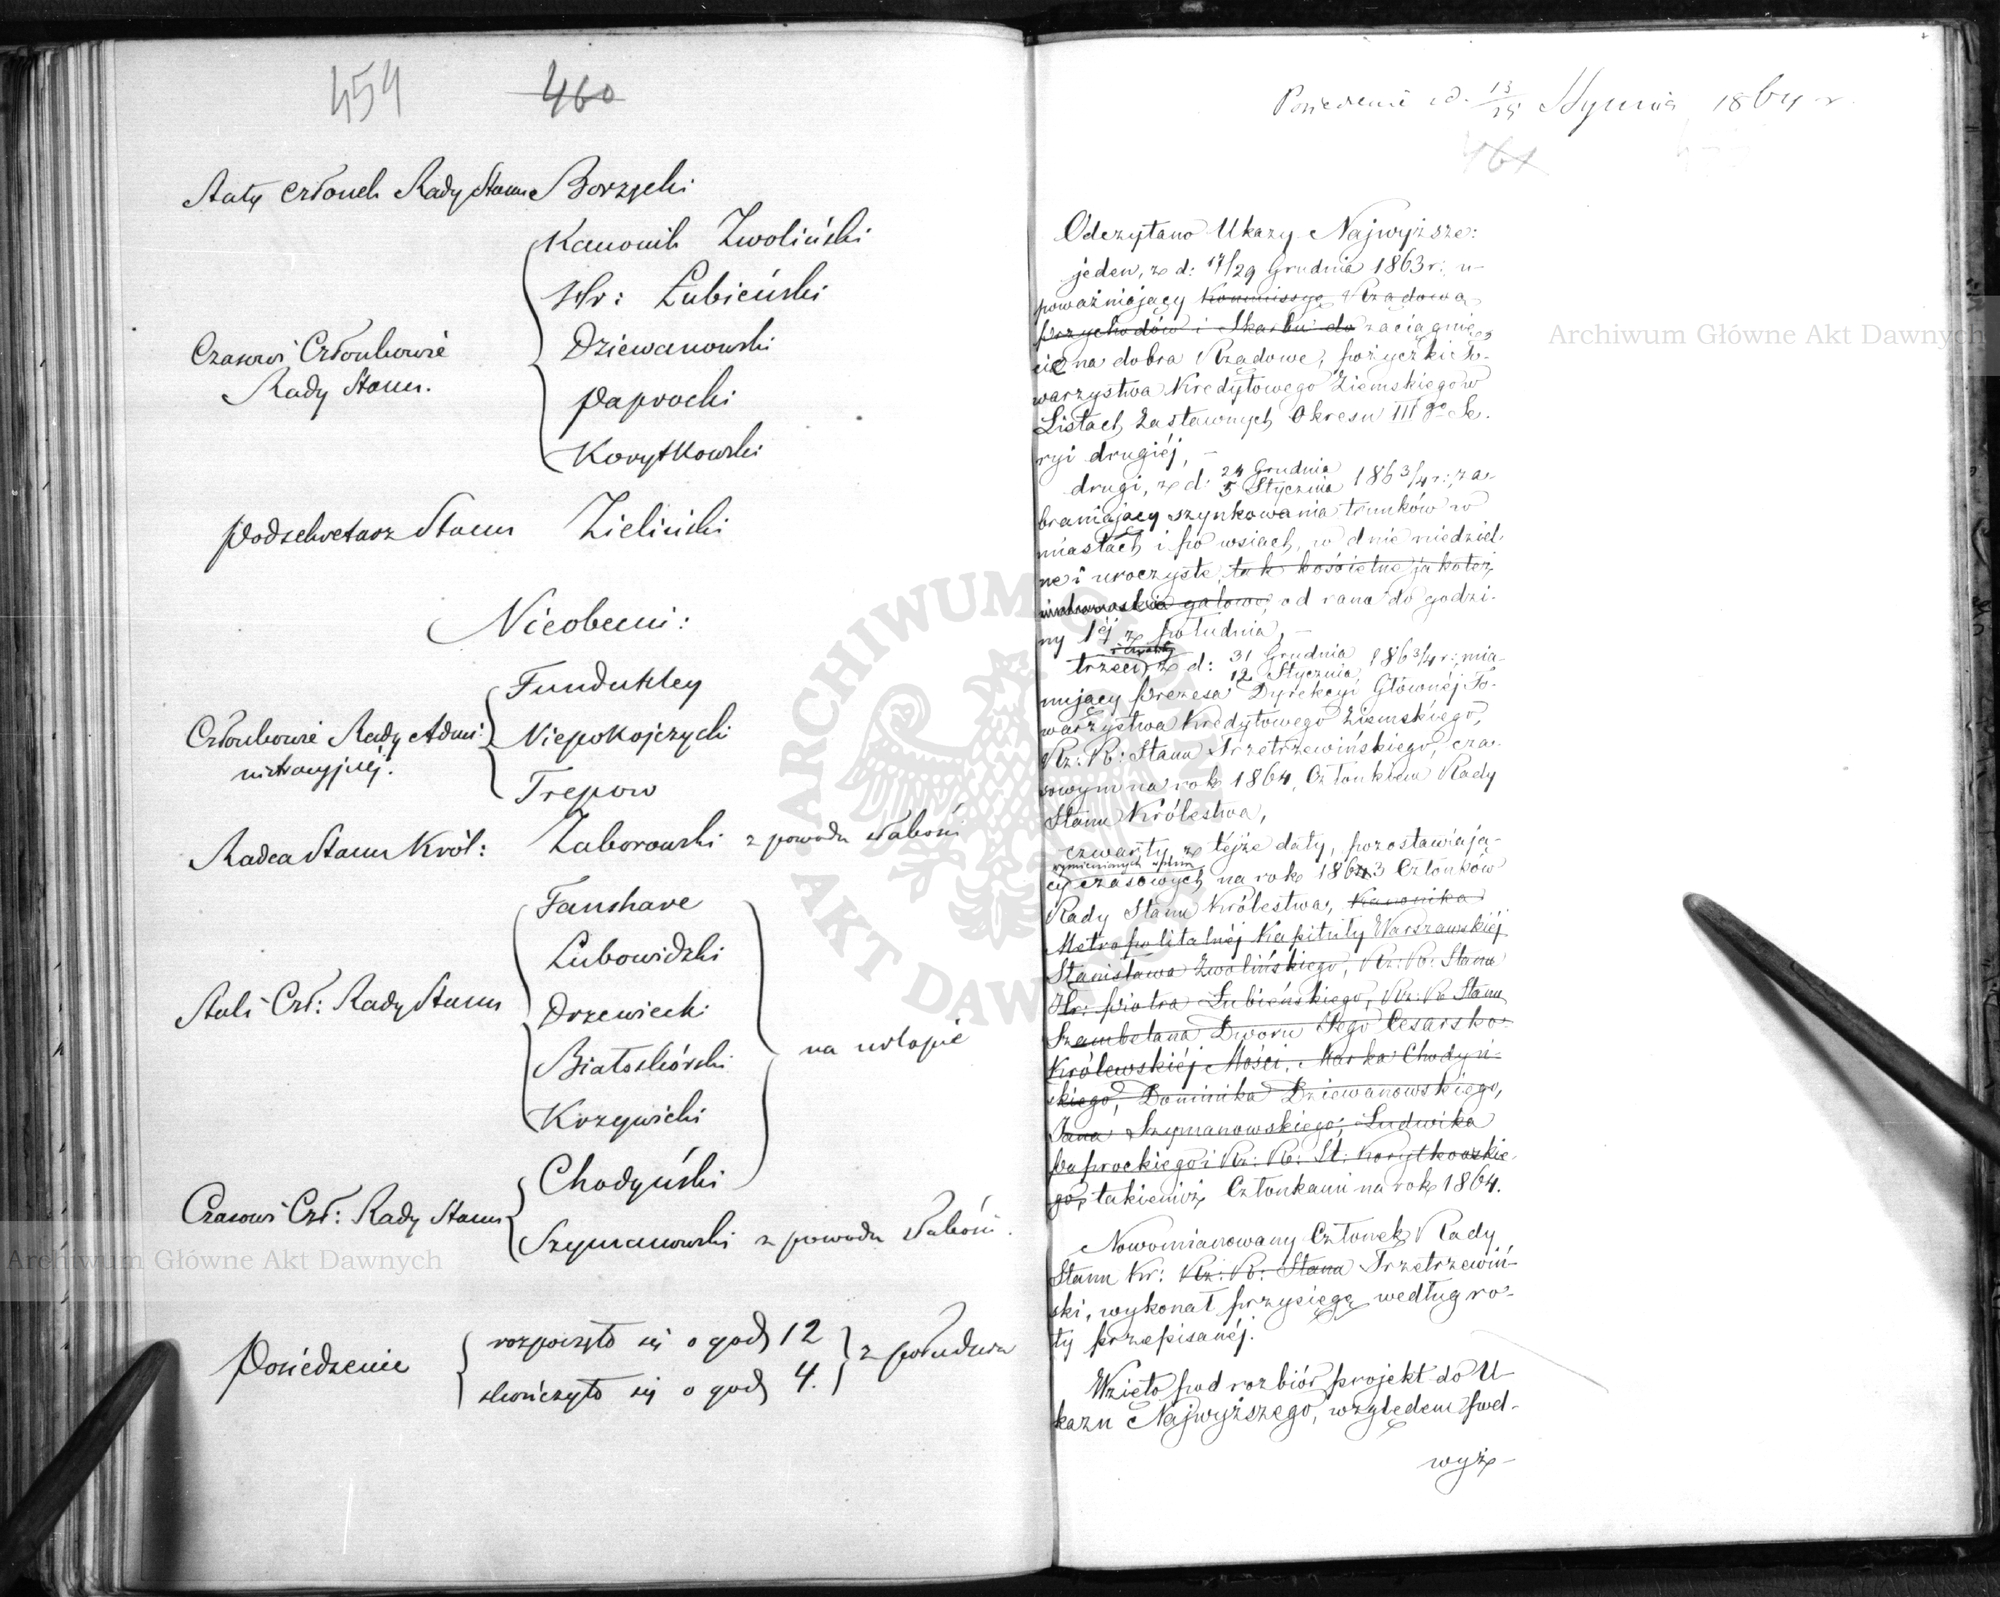 454 460
Stały Członek Rady Stanu Borzęcki
Kanonik Zwoliński
Hr: Łubieński
Dziewanowski
Czasowi Członkowie
Rady Stanu.
Paprocki
Korytkowski
Podsekretarz Stanu Zieliński
Nieobecni:
Fundukley
Członkowie Rady Admi-
nistracyjnéj.
Niepokojczycki
Trepow
Radca Stanu Król: Zaborowski z powodu słabości
Fanshave
Lubowidzki
Stali Czł: Rady Stanu
Drzewiecki
na urlopie
Białoskórski
Krzywicki
Chodyński
Czasowi Czł: Rady Stanu
Szymanowski z powodu słabości.
Posiedzenie
rozpoczęto się o godz 12
skończyło się o godz 4.
z południa
Posiedzenie d. 13/25 Stycznia 1864 r.
461
Odczytano Ukazy Najwyższe:
jeden, z d: 17/29 Grudnia 1863 r: u-
poważniający Kommissyę Rządową
Przychodów i Skarbu do zaciągnię-
cie na dobra Rządowe, pożyczki To-
warzystwa Kredytowego Ziemskiego w
Listach Zastawnych Okresu IIIgo Se-
ryi drugiéj, –
drugi, z d: 24 Grudnia / 5 Stycznia 1863/4 r: za-
braniający szynkowania trunków w
miastach i po wsiach, w dnie niedziel-
ne i uroczyste, tak kościelne jakoteż
galowe, od rana do godzi-
ny 1éj z południa, –
i czwarty
trzeci, z d: 31 Grudnia / 12 Stycznia 1863/4 r: mia-
nujący Prezesa Dyrekcyi Głównéj To-
warzystwa Kredytowego Ziemskiego,
Rz: R: Stanu Trzetrzewińskiego, cza-
sowym na rok 1864, Członkiem Rady
Stanu Królestwa,
czwarty, z tejże daty, pozostawiają-
wymienionych
cy czasowych na rok 1863 Członków
Rady Stanu Królestwa, Kanonika
Metropolitalnéj Kapituły Warszawskiéj
Stanisława Zwolińskiego, Rz: R: Stanu
Hr: Piotra Łubieńskiego, Rz: R: Stanu
Szambelana Dworu Jego Cesarsko-
Królewskiéj Mości, Marka Chodyń-
skiego, Dominika Dziewanowskiego,
Jana Szymanowskiego, Ludwika
Paprockiego i Rz: R: St: Korytkowskie-
go, takiemiż Członkami na rok 1864.
Nowomianowany Członek Rady
Stanu Kr: Rz: R: Stanu Trzetrzewiń-
ski, wykonał przysięgę według ro-
ty przepisanéj.
Wzięto pod rozbiór projekt do U-
kazu Najwyższego, względem pod-
wyż-
Archiwum Główne Akt Dawnych
Archiwum Główne Akt Dawnych